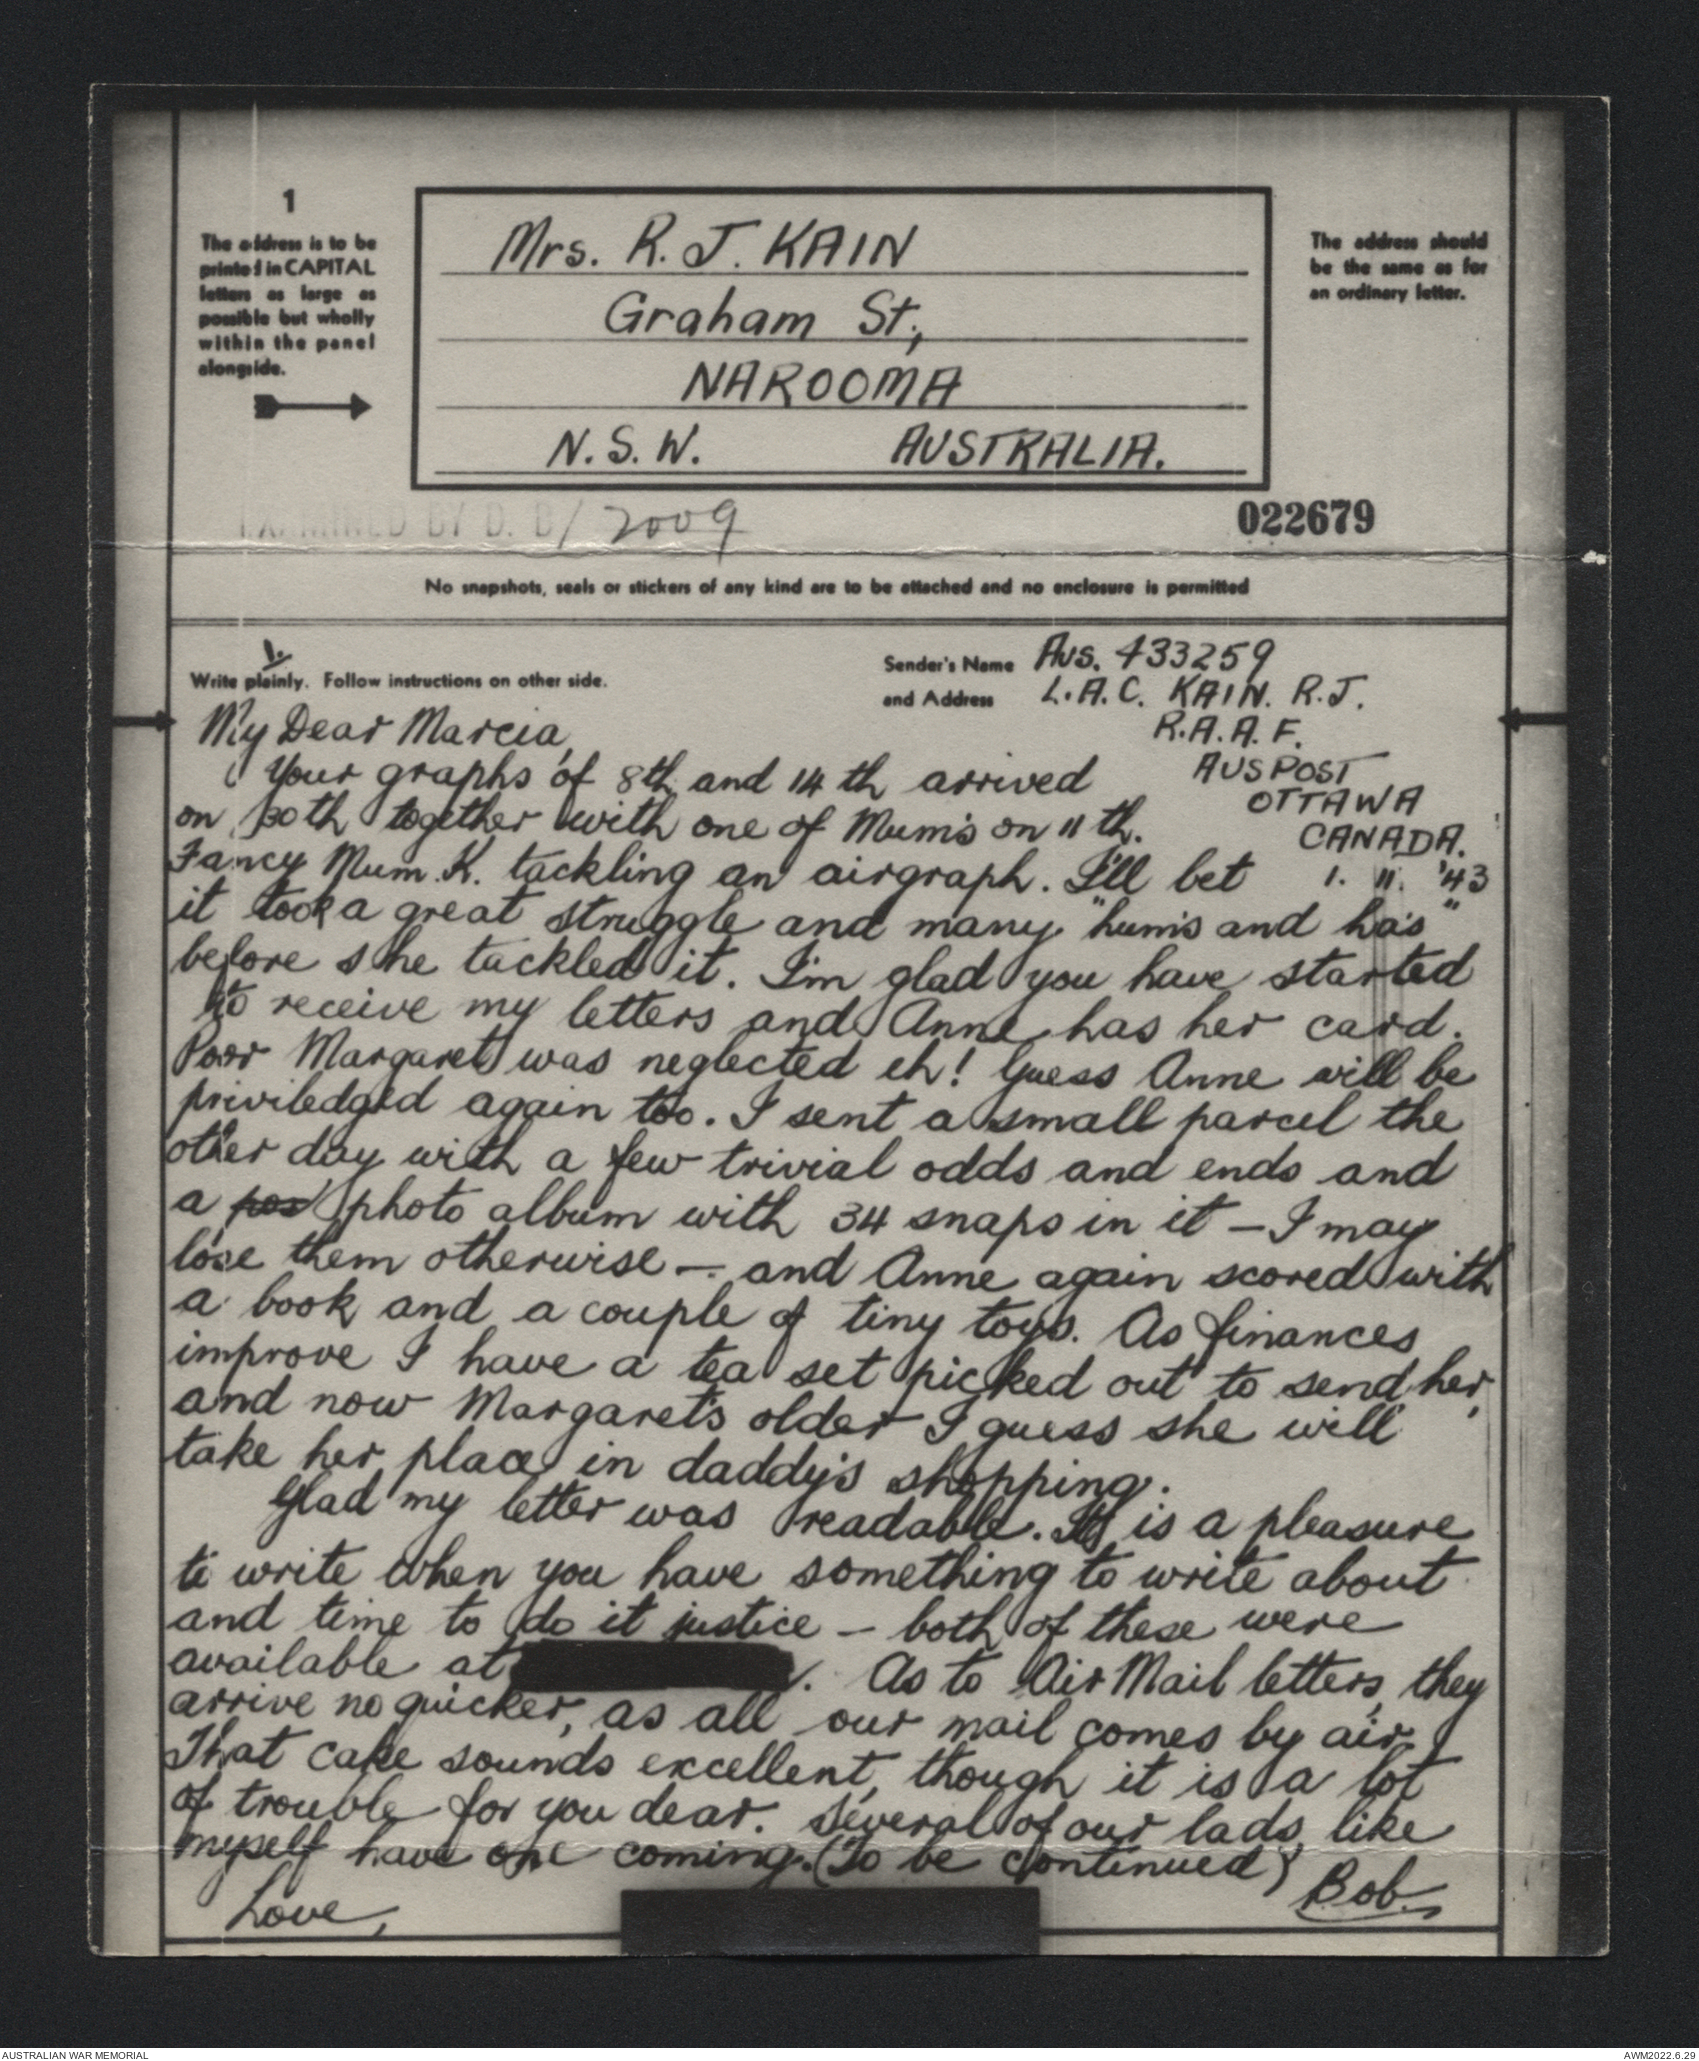 1
The address is to be
printed in CAPITAL
letters as large as
possible but wholly
within the panel
alongside.
Mrs. R. J. KAIN
Graham St.,
NAROOMA
N.S.W. AUSTRALIA.
The address should
be the same as for
an ordinary letter.
EXAMINED BY D. B/ 2009
022679
No snapshots, seals or stickers of any kind are to be attached and no enclosure is permitted
1.
Write plainly. Follow instructions on other side.
Sender's Name Aus. 433259
and Address L.A.C. KAIN. R.J.
R.A.A.F.
AUSPOST
OTTAWA
CANADA.
1. 11. '43
My Dear Marcia,
Your graphs of 8th and 14th arrived
on 30th together with one of Mum's on 11th.
Fancy Mum. K. tackling an airgraph. I'll bet
it took a great struggle and many "hum's and ha's"
before she tackled it. I'm glad you have started
to receive my letters and Anne has her card.
Poor Margaret was neglected eh! Guess Anne will be
priviledged again too. I sent a small parcel the
other day with a few trivial odds and ends and
a pos photo album with 34 snaps in it - I may
lose them otherwise - and Anne again scored with
a book and a couple of tiny toys. As finances
improve I have a tea set picked out to send her,
and now Margaret's older I guess she will
take her place in daddy's shopping.
Glad my letter was readable. It is a pleasure
to write when you have something to write about
and time to do it justice - both of these were
available at . As to Air Mail letters, they
arrive no quicker, as all our mail comes by air.
That cake sounds excellent, though it is a lot
of trouble for you dear. Several of our lads, like
myself have one coming. (To be continued)
Love, Bob.
AUSTRALIAN WAR MEMORIAL
AWM2022.6.29